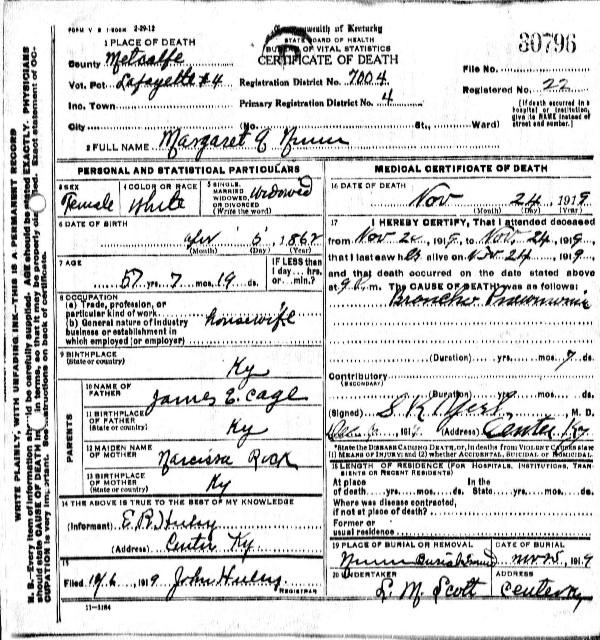 FORM V S 1-500M 2-29-12
Commonwealth of Kentucky
STATE BOARD OF HEALTH
BUREAU OF VITAL STATISTICS
CERTIFICATE OF DEATH
30796
1 PLACE OF DEATH
County Metcalfe
Vot. Pct. Lafayette #4
Registration District No. 7004
File No.
Inc. Town
Primary Registration District No. 4
Registered No. 22
City (No. St., Ward)
(If death occurred in a hospital or institution, give its NAME instead of street and number.)
2 FULL NAME Margaret J Nunn
PERSONAL AND STATISTICAL PARTICULARS
3 SEX Female
4 COLOR OR RACE White
5 SINGLE, MARRIED, WIDOWED, OR DIVORCED (Write the word) Widowed
6 DATE OF BIRTH
Apr 5, 1862
(Month) (Day) (Year)
7 AGE
57 yrs. 7 mos. 19 ds.
IF LESS than 1 day... hrs. or... min.?
8 OCCUPATION
(a) Trade, profession, or particular kind of work
(b) General nature of industry business or establishment in which employed (or employer)
housewife
9 BIRTHPLACE
(State or country) Ky
PARENTS
10 NAME OF FATHER James E. Cage
11 BIRTHPLACE OF FATHER (State or country) Ky
12 MAIDEN NAME OF MOTHER Narcissa
13 BIRTHPLACE OF MOTHER (State or country) Ky
14 THE ABOVE IS TRUE TO THE BEST OF MY KNOWLEDGE
(Informant) E. R.
(Address) Center Ky.
15
Filed 1919 John
REGISTRAR
11-3184
MEDICAL CERTIFICATE OF DEATH
16 DATE OF DEATH
Nov 24, 1919
(Month) (Day) (Year)
17 I HEREBY CERTIFY, That I attended deceased
from Nov 20, 1919, to Nov. 24, 1919
that I last saw her alive on Nov 24, 1919,
and that death occurred on the date stated above
at 9 m. The CAUSE OF DEATH was as follows:
Broncho Pneumonia
(Duration) yrs. mos. 7 ds.
Contributory
(SECONDARY)
(Duration) yrs. mos. ds.
(Signed) S. K. M. D.
191 (Address) Center Ky
*State the DISEASE CAUSING DEATH, or, in deaths from VIOLENT CAUSES state (1) MEANS OF INJURY; and (2) whether ACCIDENTAL, SUICIDAL or HOMICIDAL.
18 LENGTH OF RESIDENCE (FOR HOSPITALS, INSTITUTIONS, TRANSIENTS OR RECENT RESIDENTS)
At place of death yrs. mos. ds. In the State yrs. mos. ds.
Where was disease contracted, if not at place of death?
Former or usual residence
19 PLACE OF BURIAL OR REMOVAL
Nunn Burial Ground
DATE OF BURIAL
Nov 25, 1919
20 UNDERTAKER
L. M. Scott
ADDRESS
Center Ky
WRITE PLAINLY, WITH UNFADING INK—THIS IS A PERMANENT RECORD
N. B.—Every item of information should be carefully supplied. AGE should be stated EXACTLY. PHYSICIANS should state CAUSE OF DEATH in terms, so that it may be properly classified. Exact statement of OCCUPATION is very important. See instructions on back of certificate.